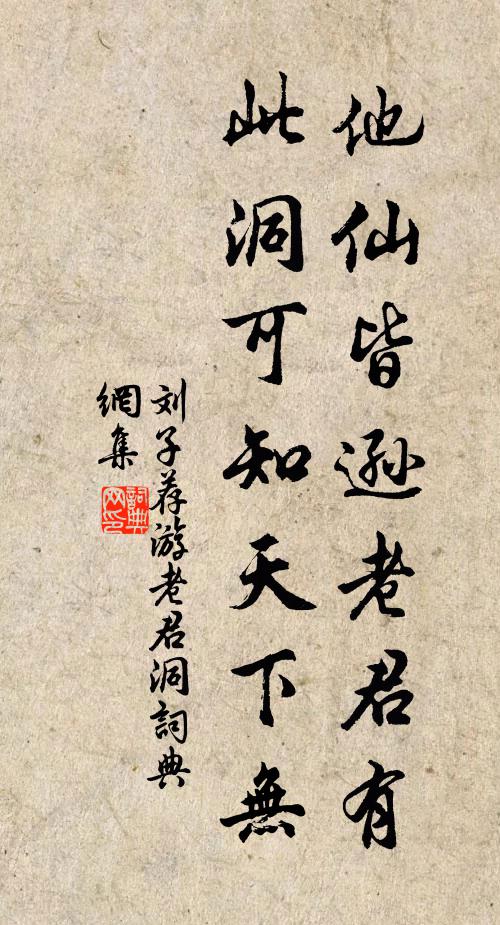 他仙皆遜老君有
此洞可知天下無
刘子荐游老君洞詞典
網集
詞典
网印